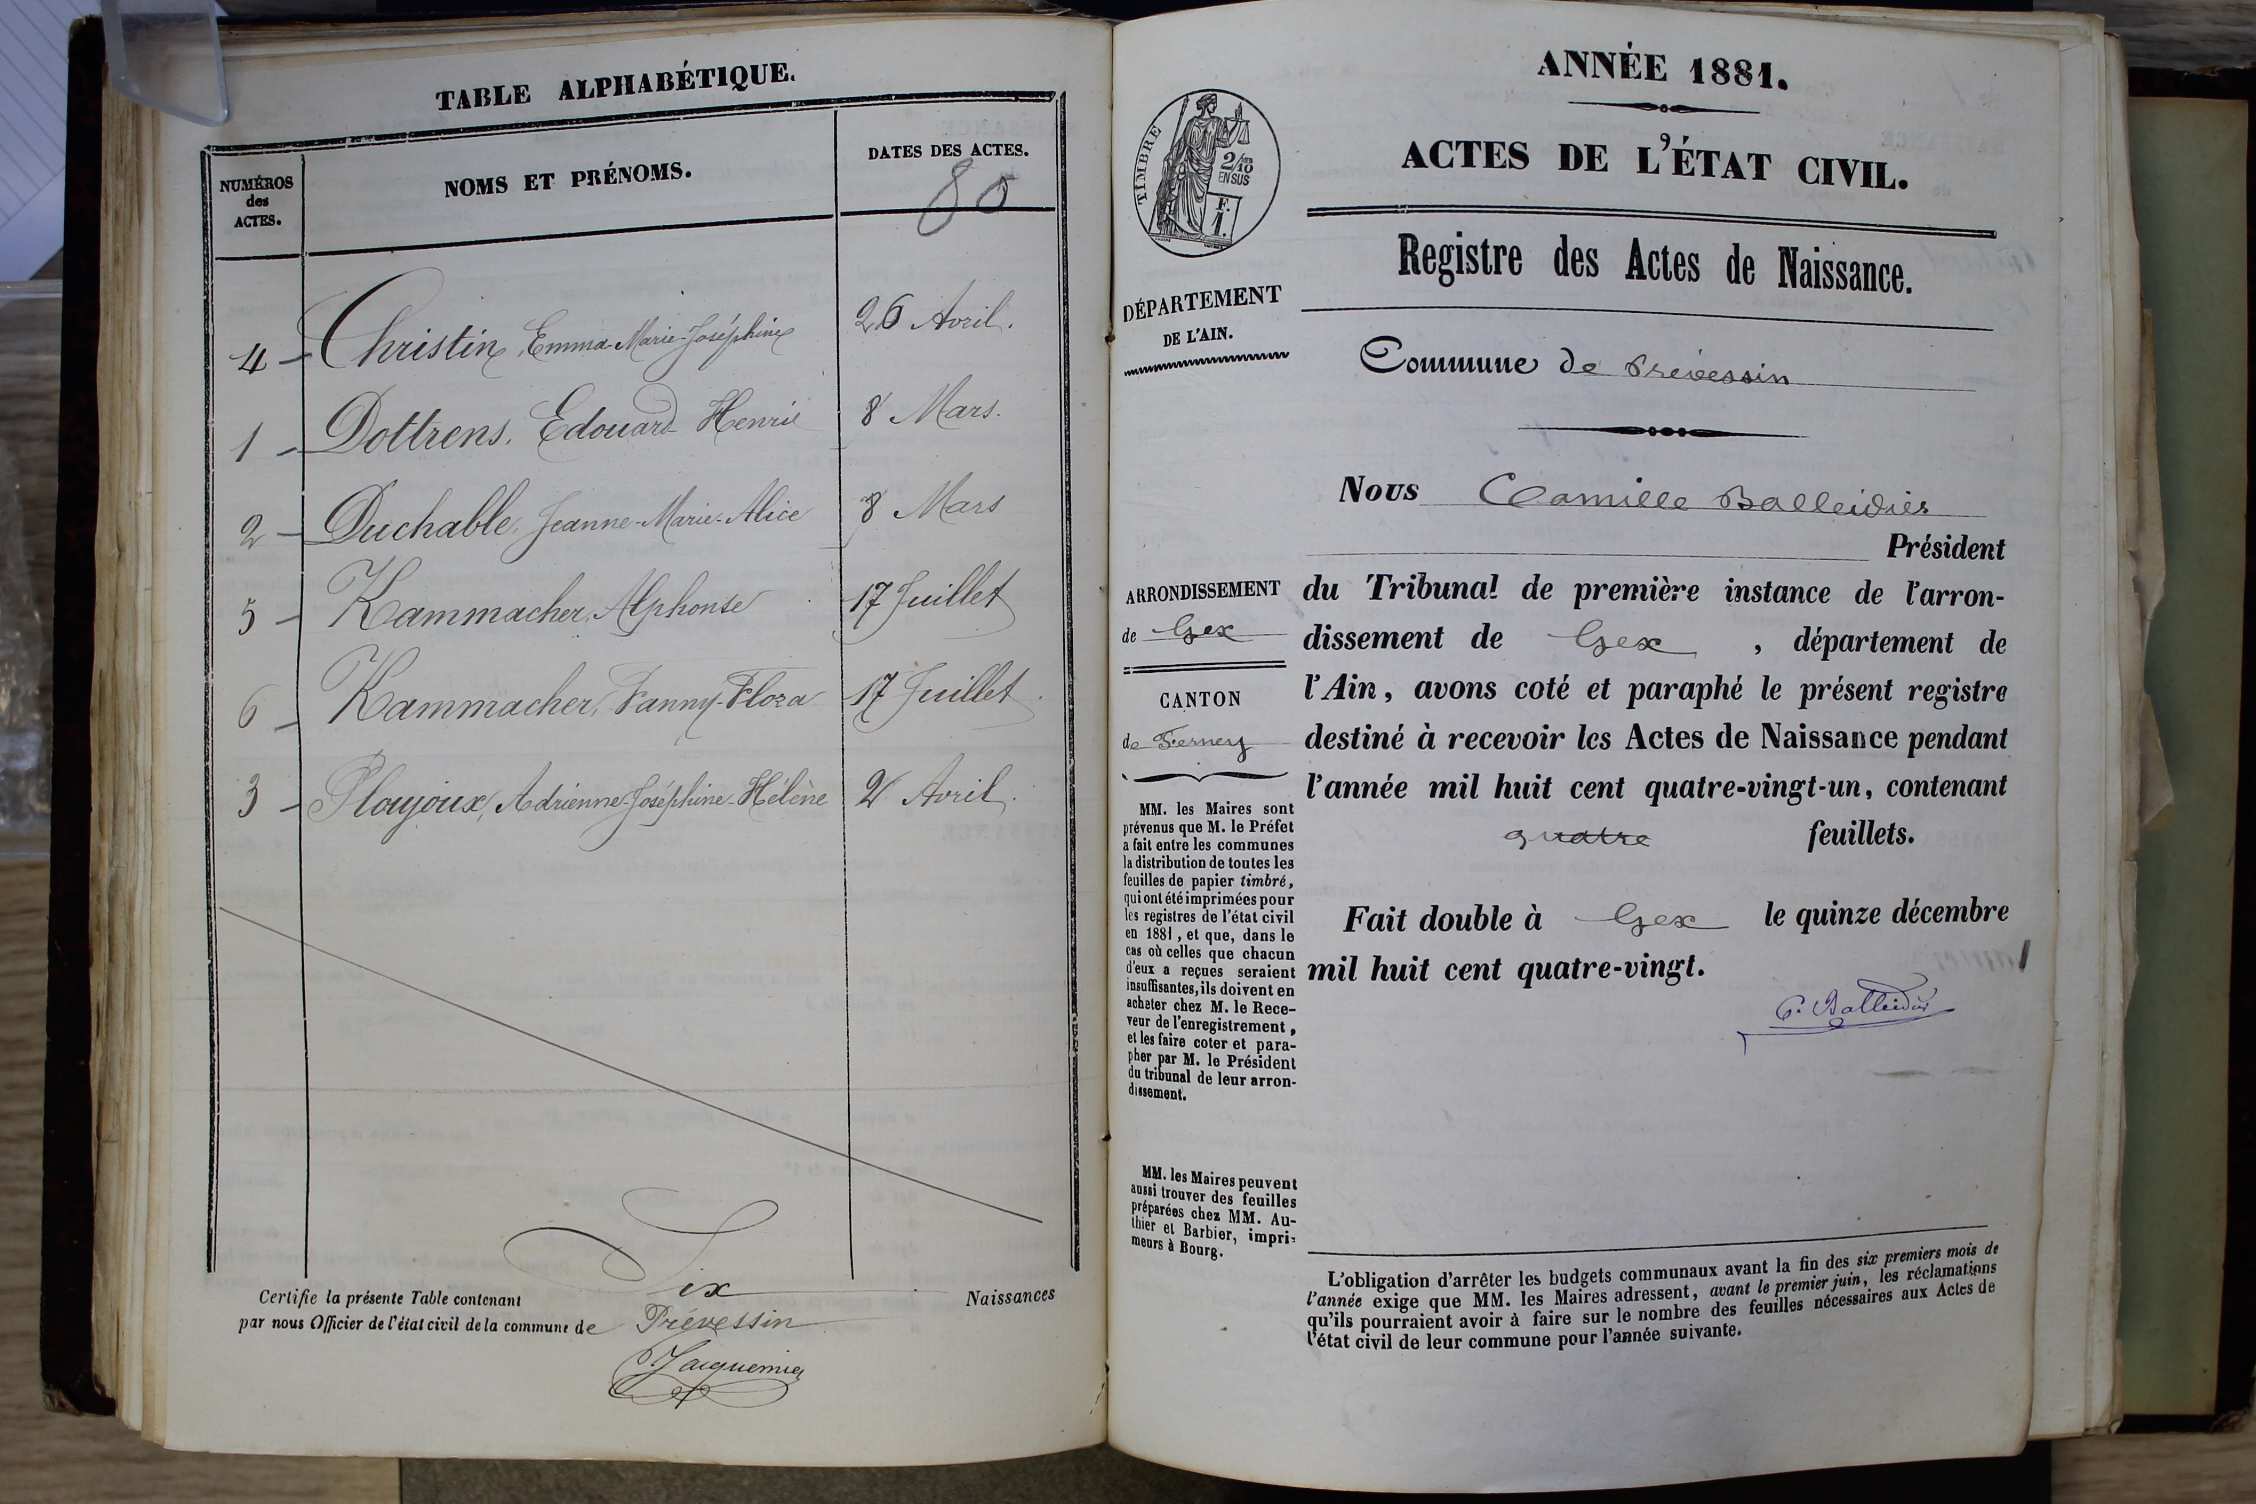 TABLE ALPHABÉTIQUE.
NUMÉROS
des
ACTES.
NOMS ET PRÉNOMS.
DATES DES ACTES.
80
4 - Christin, Emma-Marie-Joséphine 26 Avril.
1 - Dottrens, Edouard-Henri 8 Mars.
2 - Duchable, Jeanne-Marie-Alice 8 Mars
5 - Kammacher, Alphonse 17 Juillet
6 - Kammacher, Fanny-Flora 17 Juillet.
3 - Ploujoux, Adrienne-Joséphine-Hélène 2 Avril.
Certifie la présente Table contenant Six Naissances
par nous Officier de l'état civil de la commune de Prévessin
Jacquemier
ANNÉE 1881.
ACTES DE L'ÉTAT CIVIL.
TIMBRE
2/10 EN SUS
F.
1.
Registre des Actes de Naissance.
DÉPARTEMENT
DE L'AIN.
Commune de Prévessin
Nous Camille Balleidier
Président
du Tribunal de première instance de l'arron-
dissement de Gex, département de
l'Ain, avons coté et paraphé le présent registre
destiné à recevoir les Actes de Naissance pendant
l'année mil huit cent quatre-vingt-un, contenant
quatre feuillets.
Fait double à Gex le quinze décembre
mil huit cent quatre-vingt.
C. Balleidier
ARRONDISSEMENT
de Gex
CANTON
de Ferney
MM. les Maires sont
prévenus que M. le Préfet
a fait entre les communes
la distribution de toutes les
feuilles de papier timbré,
qui ont été imprimées pour
les registres de l'état civil
en 1881, et que, dans le
cas où celles que chacun
d'eux a reçues seraient
insuffisantes, ils doivent en
acheter chez M. le Rece-
veur de l'enregistrement,
et les faire coter et para-
pher par M. le Président
du tribunal de leur arron-
dissement.
MM. les Maires peuvent
aussi trouver des feuilles
préparées chez MM. Au-
thier et Barbier, impri-
meurs à Bourg.
L'obligation d'arrêter les budgets communaux avant la fin des six premiers mois de
l'année exige que MM. les Maires adressent, avant le premier juin, les réclamations
qu'ils pourraient avoir à faire sur le nombre des feuilles nécessaires aux Actes de
l'état civil de leur commune pour l'année suivante.